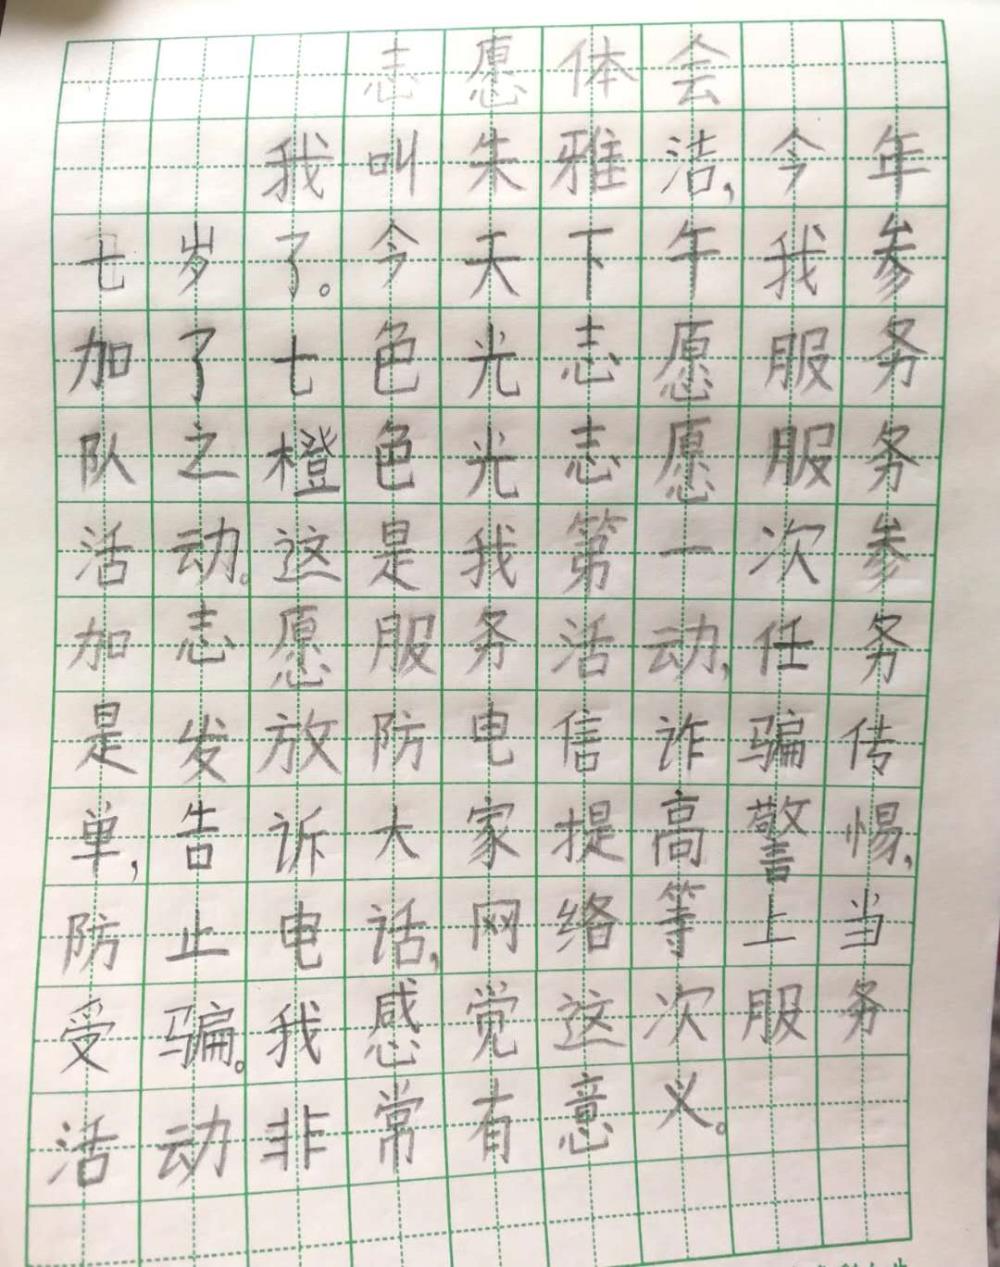 志愿体会
我叫朱雅洁,今年
七岁了。今天下午我参
加了七色光志愿服务
队之橙色光志愿服务
活动。这是我第一次参
加志愿服务活动,任务
是发放防电信诈骗传
单,告诉大家提高警惕,
防止电话,网络等上当
受骗。我感觉这次服务
活动非常有意义。